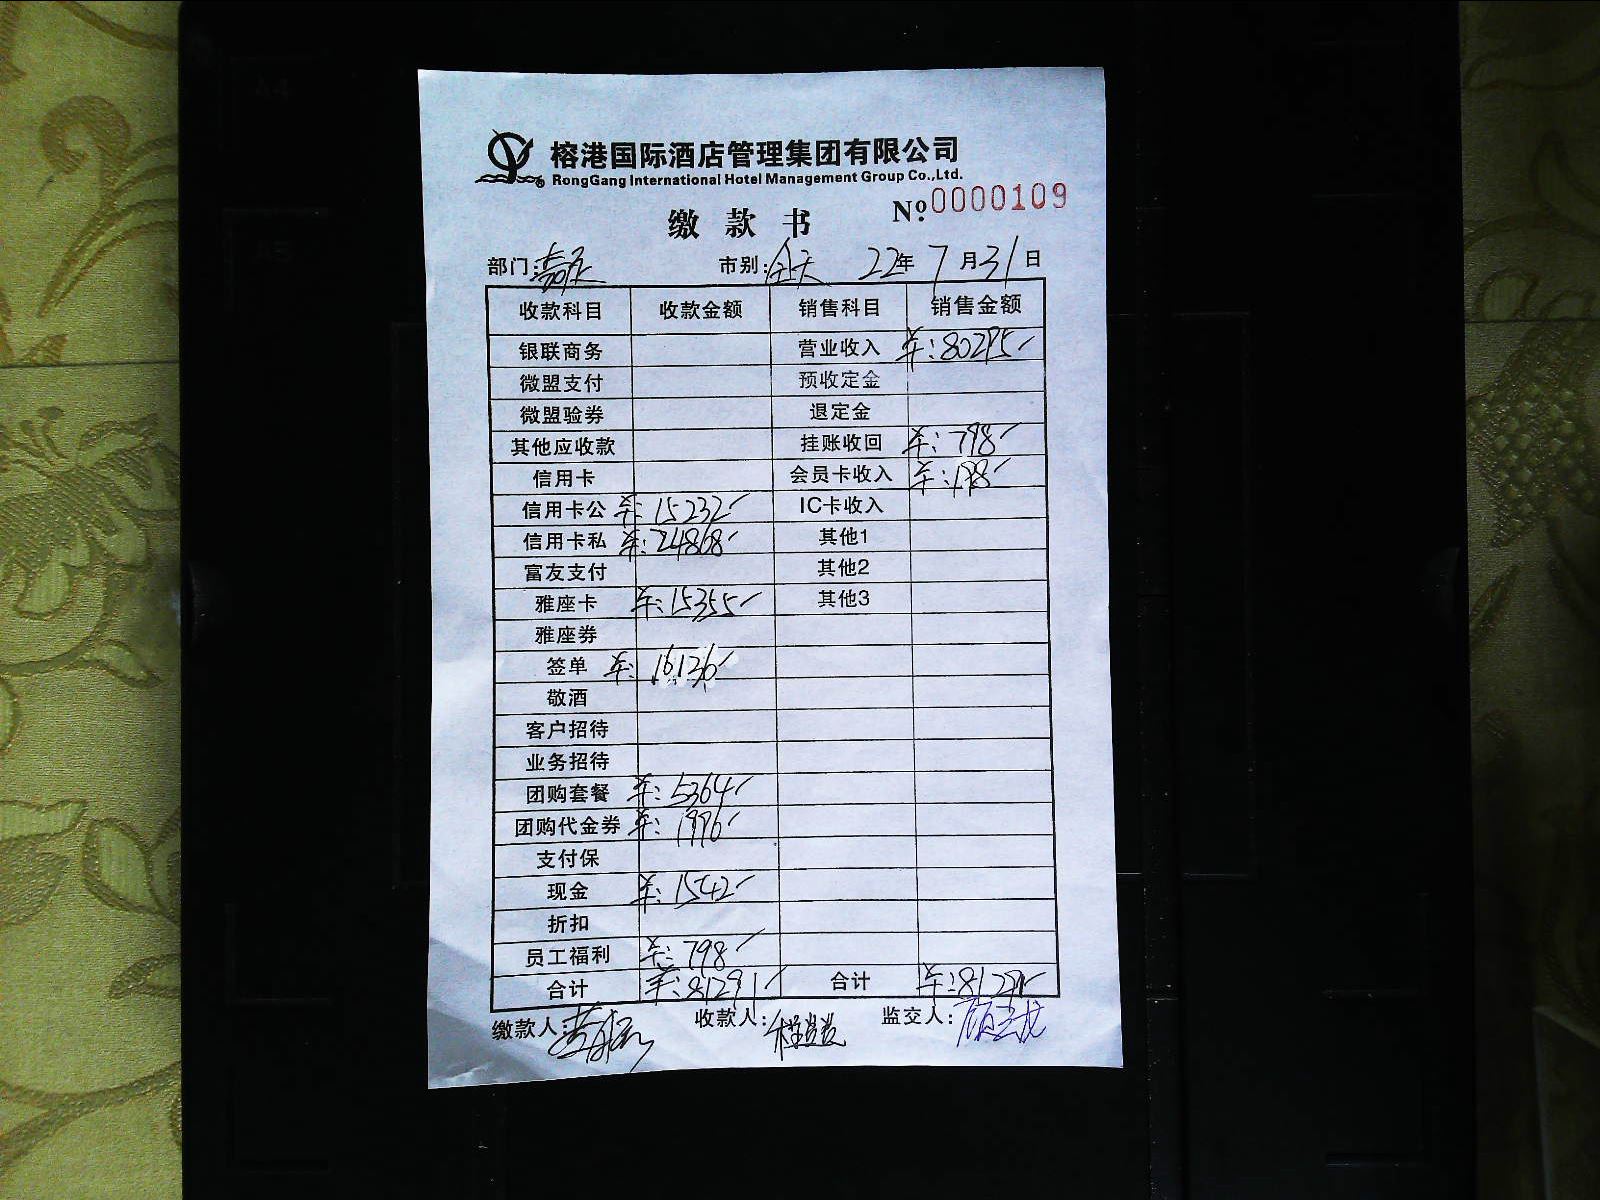 榕港国际酒店管理集团有限公司
RongGang International Hotel Management Group Co.,Ltd.
缴款书 №0000109
部门: 市别:全天 22年7月31日
收款科目 收款金额 销售科目 销售金额
银联商务 营业收入 ¥:80295
微盟支付 预收定金
微盟验券 退定金
其他应收款 挂账收回 ¥:798
信用卡 会员卡收入 ¥:198
信用卡公 ¥:15232 IC卡收入
信用卡私 ¥:24868 其他1
富友支付 其他2
雅座卡 ¥:15355 其他3
雅座券
签单 ¥:16136
敬酒
客户招待
业务招待
团购套餐 ¥:5364
团购代金券 ¥:1996
支付保
现金 ¥:1542
折扣
员工福利 ¥:798
合计 ¥:81291 合计 ¥:81291
缴款人: 收款人: 监交人: